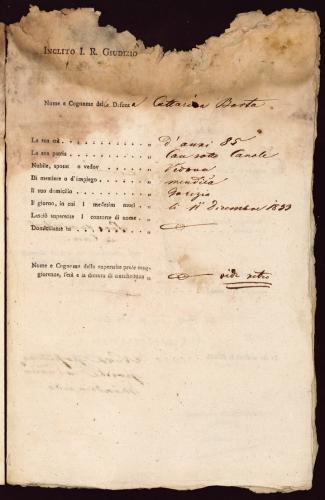 INCLITO I. R. GIUDIZIO
Nome e Cognome della Defonta Cattarina Barta
La sua età . . . . . . . . „ d'anni 85
La sua patria . . . . . . . „
Nubile, sposa o vedova . . . „ vedova
Di mestiere o d'impiego . . . . „ mendica
Il suo domicilio . . . . . . . „
Il giorno, in cui i medesimi morì . . „ li 11 dicembre 1833
Lasciò superstite i consorte di nome . . „
Domiciliante in . . . . . . „
Nome e Cognome della superstite prole mag-
giorenne, l'età e la dimora di ciascheduno „ vide retro